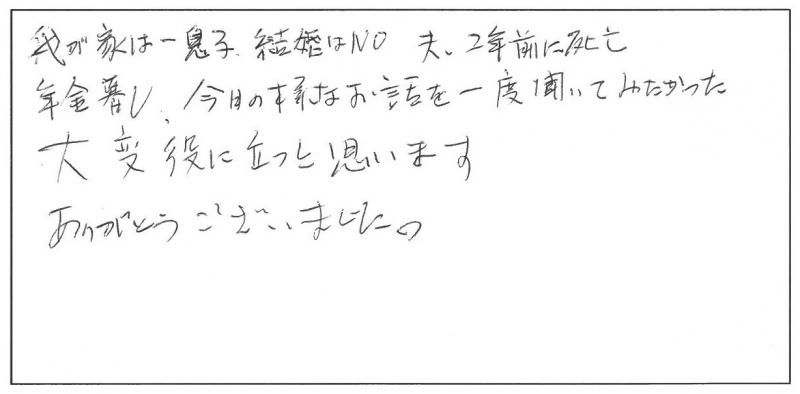 我が家は一息子、結婚はNO 夫、2年前に死亡
年金暮し、今日の様なお話を一度聞いてみたかった
大変役に立つと思います
ありがとうございました。